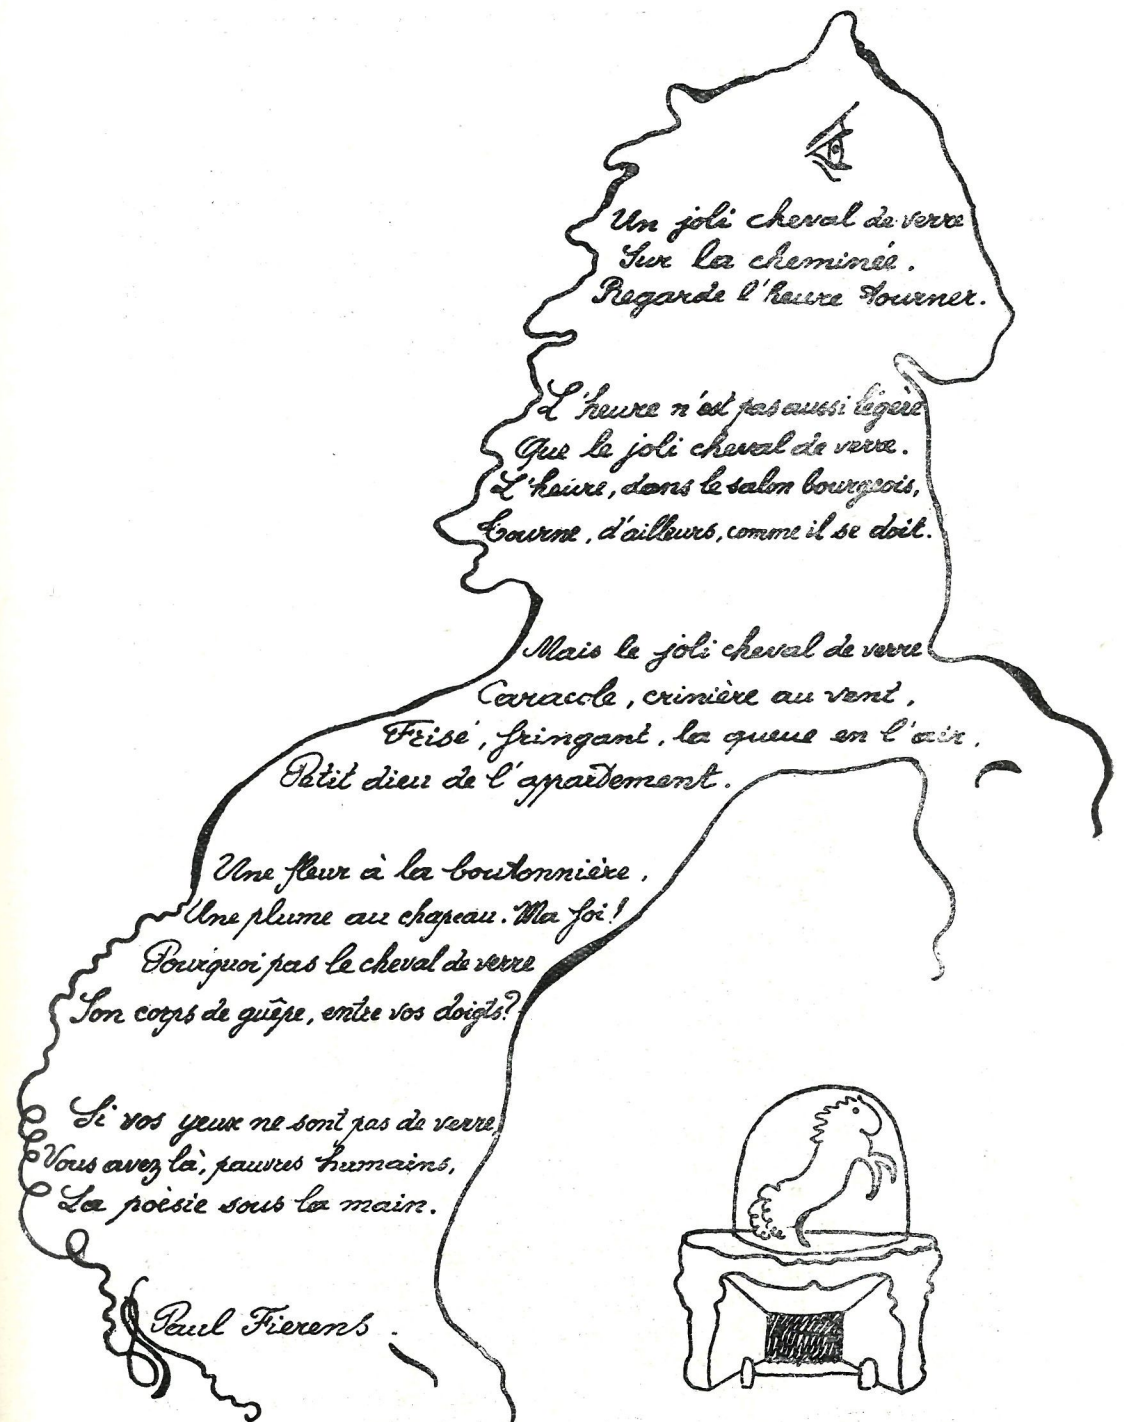 Un joli cheval de verre
Sur la cheminée.
Regarde l'heure tourner.
L'heure n'est pas aussi légère
Que le joli cheval de verre.
L'heure, dans le salon bourgeois,
Tourne, d'ailleurs, comme il se doit.
Mais le joli cheval de verre
Caracole, crinière au vent,
Frisé, fringant, la queue en l'air,
Petit dieu de l'appartement.
Une fleur à la boutonnière,
Une plume au chapeau. Ma foi!
Pourquoi pas le cheval de verre
Son corps de guêpe, entre vos doigts?
Si vos yeux ne sont pas de verre,
Vous avez là, pauvres humains,
La poèsie sous la main.
Paul Fierens.